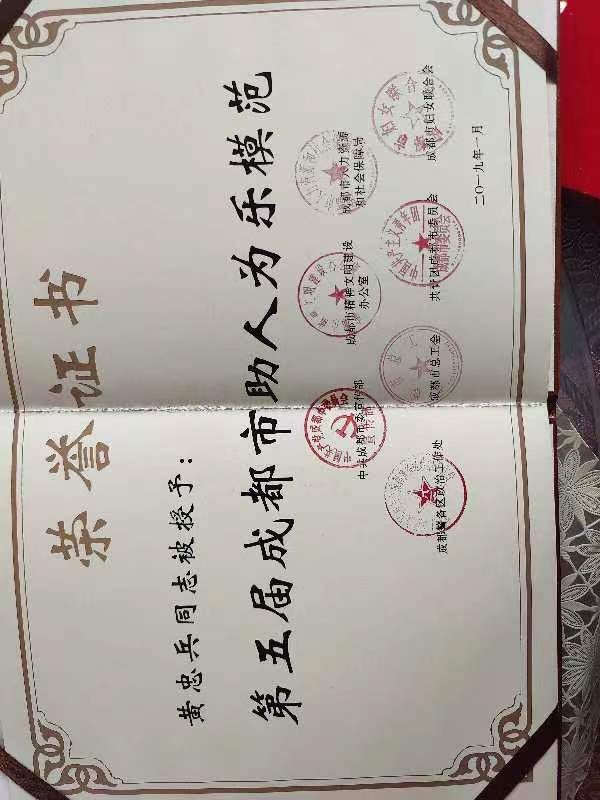 荣誉证书
黄忠兵同志被授予：
第五届成都市助人为乐模范
中共成都市委宣传部
成都市精神文明建设
办公室
成都市人力资源
和社会保障局
成都警备区政治工作处
成都市总工会
共青团成都市委员会
成都市妇女联合会
二〇一九年一月